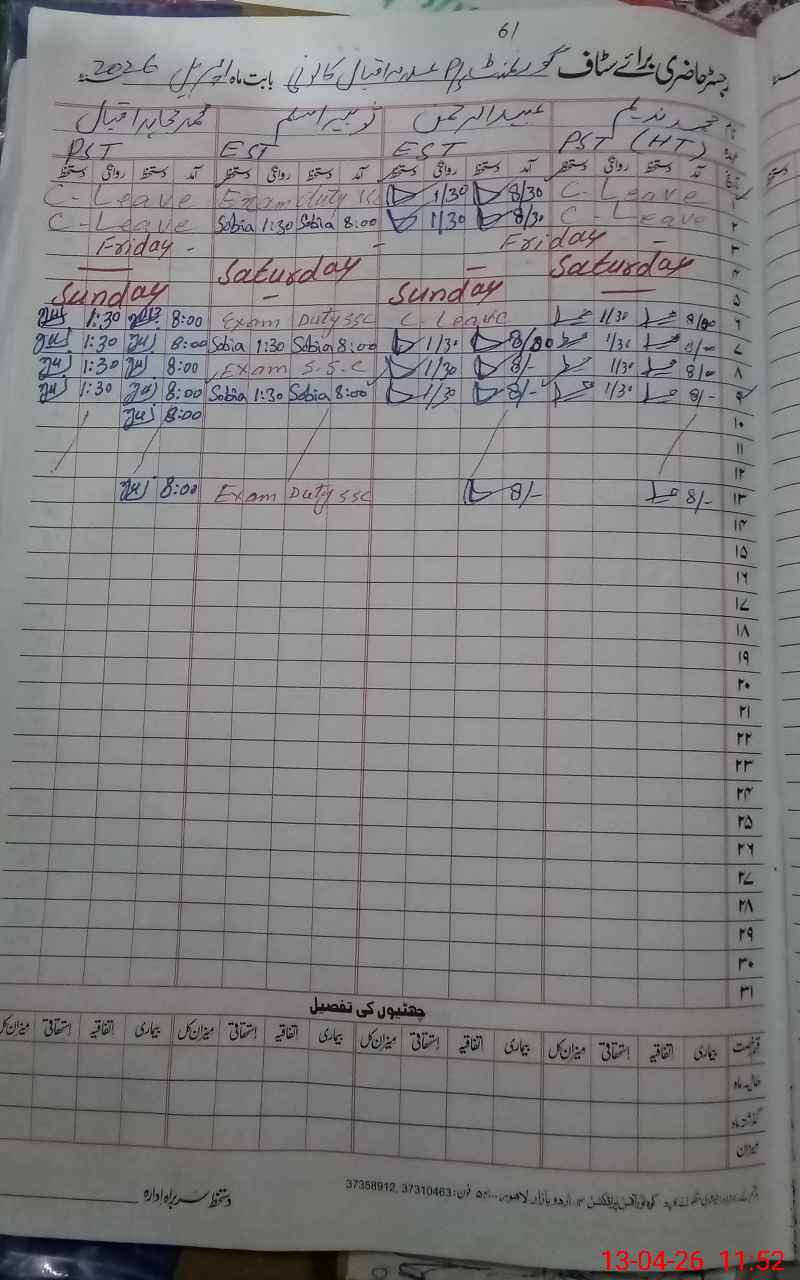 61
رجسٹر حاضری برائے سٹاف گورنمنٹ P/S علامہ اقبال کالونی بابت ماہ اپریل 2026
نام محمد ندیم عبیدالرحمن ثوبیہ اسلم محمد مجاہد اقبال
عہدہ PST (HT) EST EST PST
تاریخ آمد دستخط روانگی دستخط آمد دستخط روانگی دستخط آمد دستخط روانگی دستخط آمد دستخط روانگی دستخط
C-Leave Exam duty SSC 1/30 8/30 C-Leave
C-Leave Sobia 1:30 Sobia 8:00 1/30 8/30 C-Leave ۲
Friday - - Friday - ۳
Saturday - Saturday ۴
Sunday - Sunday ۵
1:30 8:00 Exam Duty SSC C-Leave 1/30 8/00 ۶
1:30 8:00 Sobia 1:30 Sobia 8:00 1/30 8/00 1/30 8/00 ۷
1:30 8:00 Exam S.S.C 1/30 8/- 1/30 8/00 ۸
1:30 8:00 Sobia 1:30 Sobia 8:00 1/30 8/- 1/30 8/- ۹
8:00 ۱۰
۱۱
۱۲
8:00 Exam Duty SSC 8/- 8/- ۱۳
۱۴
۱۵
۱۶
۱۷
۱۸
۱۹
۲۰
۲۱
۲۲
۲۳
۲۴
۲۵
۲۶
۲۷
۲۸
۲۹
۳۰
۳۱
چھٹیوں کی تفصیل
قسم رخصت بیماری اتفاقیہ استحقاقی میزان کل بیماری اتفاقیہ استحقاقی میزان کل بیماری اتفاقیہ استحقاقی میزان کل بیماری اتفاقیہ استحقاقی میزان کل
حالیہ ماہ
گذشتہ ماہ
میزان
دستخط سربراہ ادارہ
اردو بازار لاہور فون: 37310463, 37358912
13-04-26 11:52